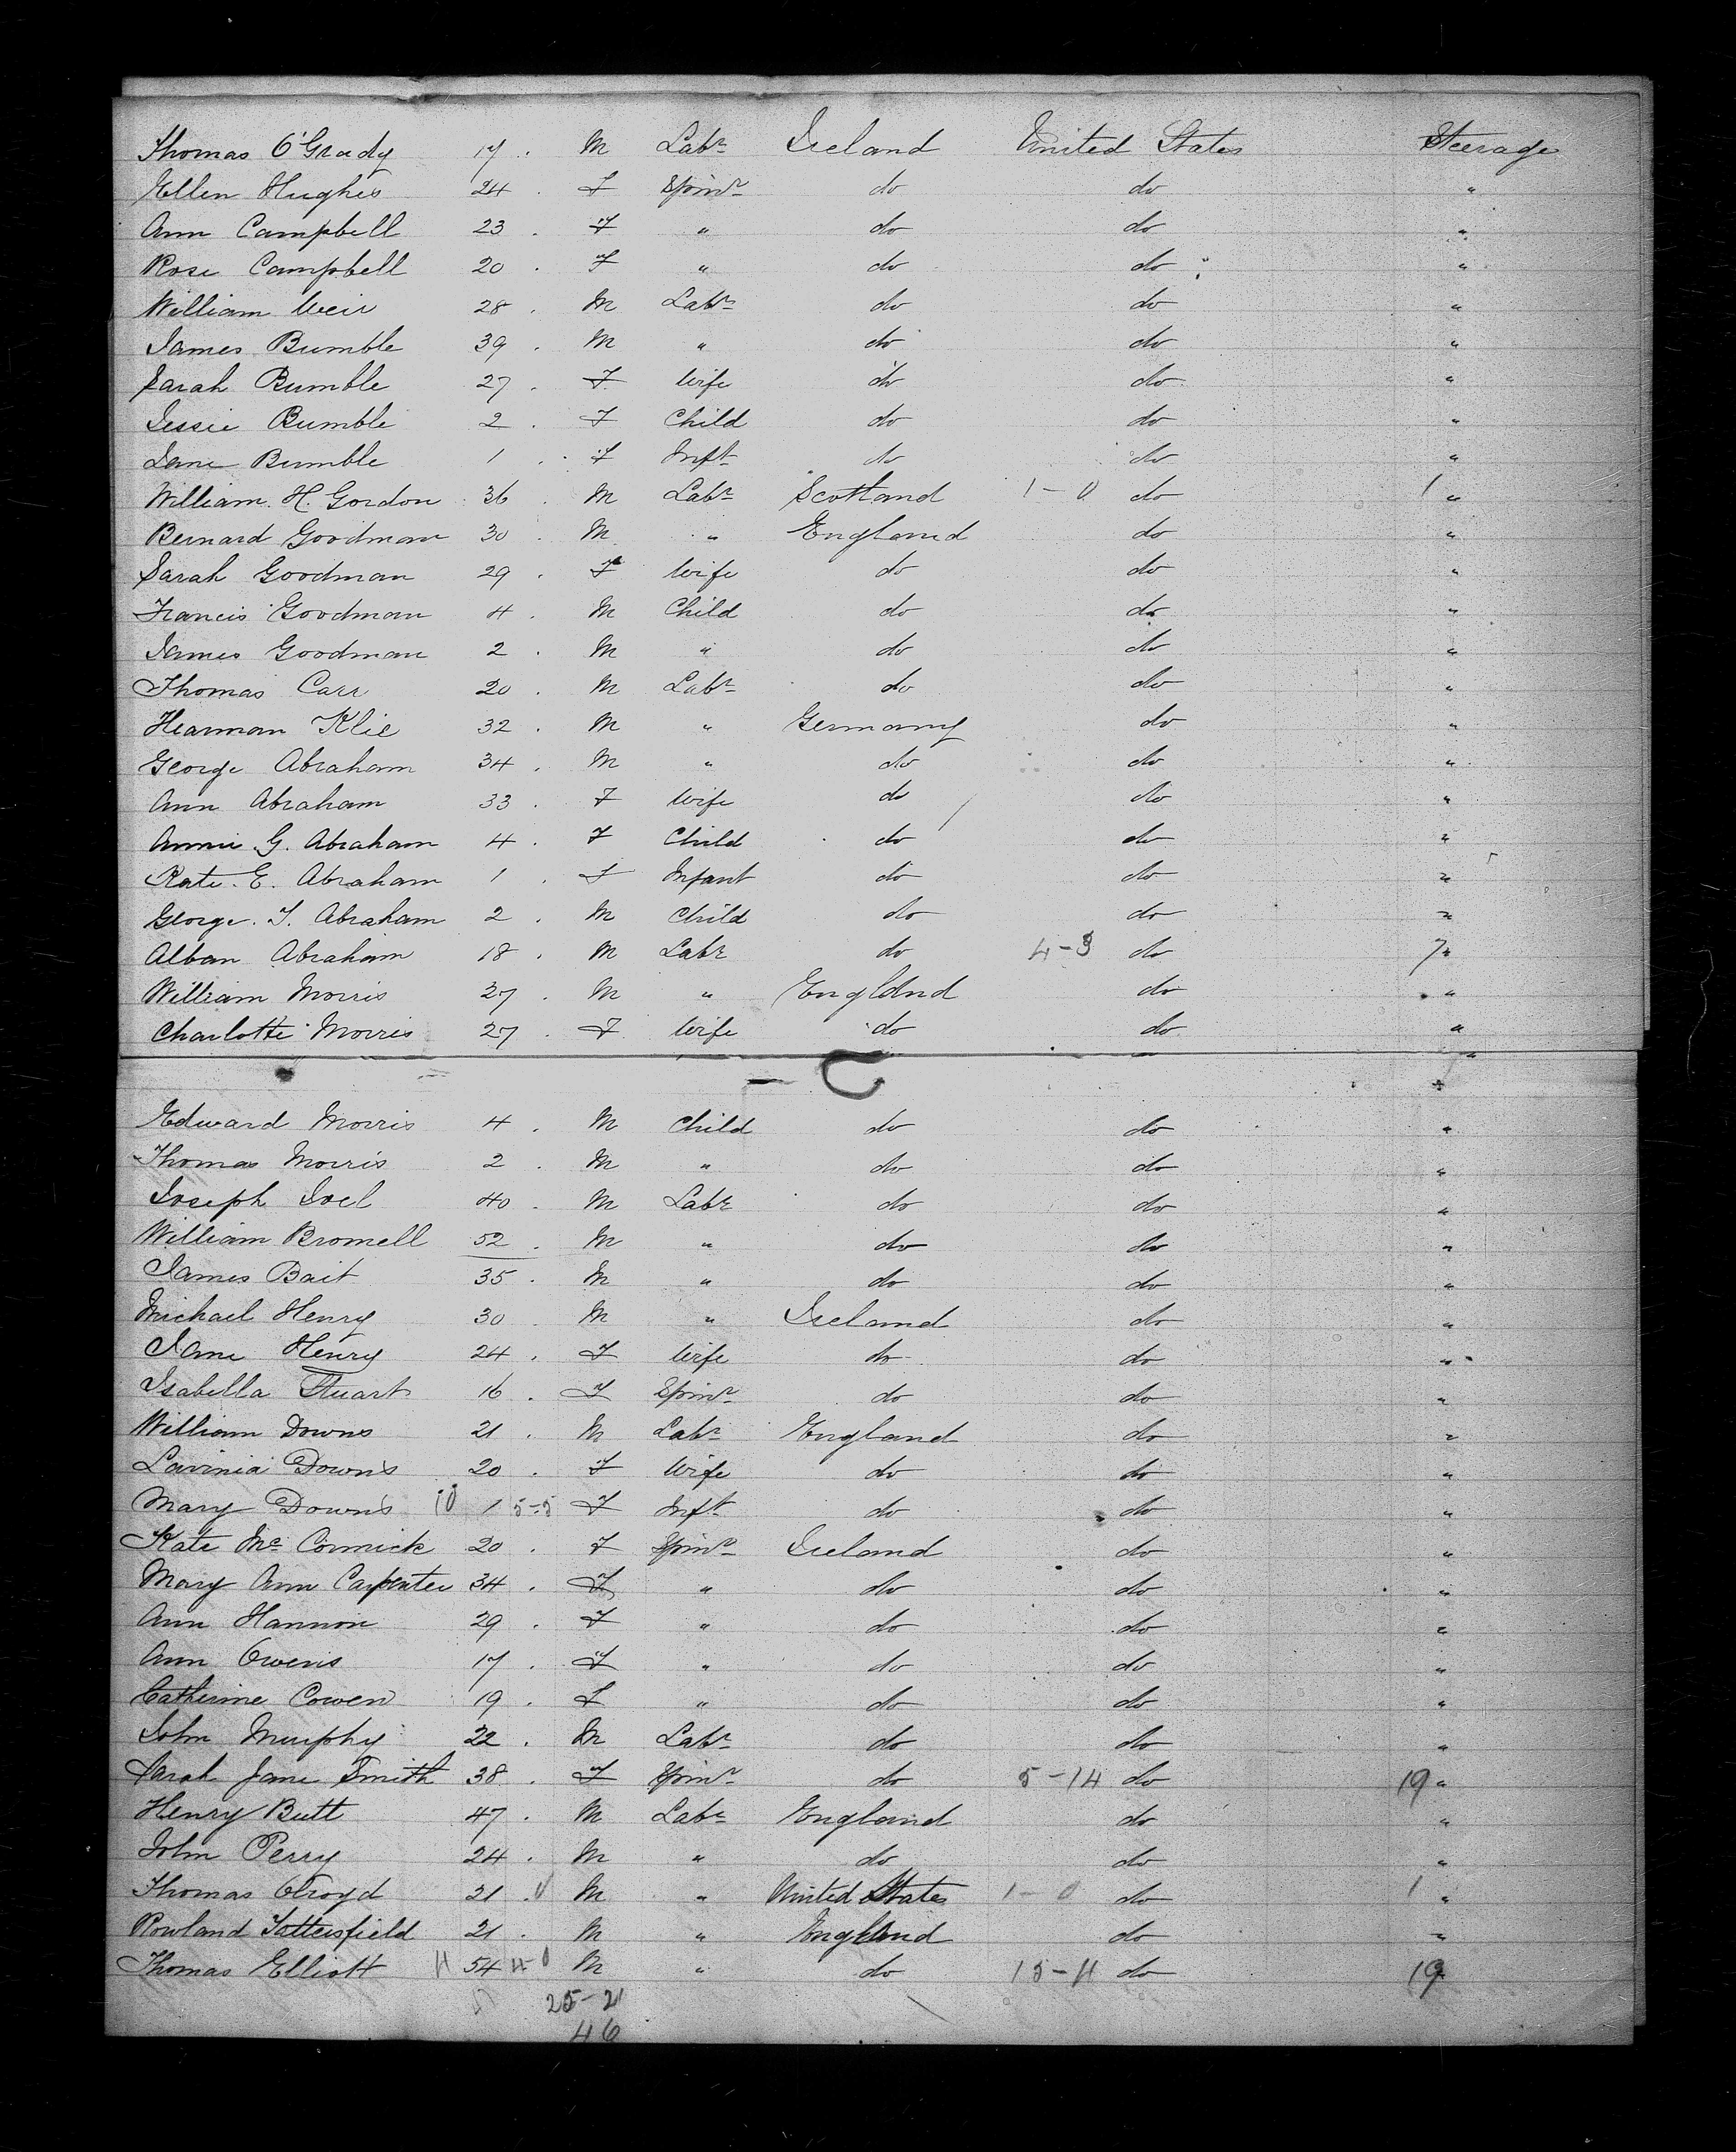 Thomas O'Grady 17 . M Labr Ireland United States Steerage
Ellen Hughes 24 . F Spinr do do "
Ann Campbell 23 . F " do do "
Rose Campbell 20 . F " do do "
William Weir 28 . M Labr do do "
James Bumble 39 . M " do do "
Sarah Bumble 27 . F Wife do do "
Jessie Bumble 2 . F Child do do "
Jane Bumble 1 . F Inft do do "
William H. Gordon 36 . M Labr Scotland 1-0 do 1 "
Bernard Goodman 30 . M " England do "
Sarah Goodman 29 . F Wife do do "
Francis Goodman 4 . M Child do do "
James Goodman 2 . M " do do "
Thomas Carr 20 . M Labr do do "
Hearman Klie 32 . M " Germany do "
George Abraham 34 . M " do do "
Ann Abraham 33 . F Wife do do "
Annie G. Abraham 4 . F Child do do "
Kate E. Abraham 1 . F Infant do do "
George T. Abraham 2 . M Child do do "
Alban Abraham 18 . M Labr do 4-3 do 7 "
William Morris 27 . M " England do "
Charlotte Morris 27 . F Wife do do "
Edward Morris 4 . M Child do do "
Thomas Morris 2 . M " do do "
Joseph Joel 40 . M Labr do do "
William Bromell 52 . M " do do "
James Bait 35 . M " do do "
Michael Henry 30 M " Ireland do "
Jane Henry 24 . F Wife do do "
Isabella Stuart 16 . F Spinr do do "
William Downs 21 . M Labr England do "
Lavinia Downs 20 . F Wife do do "
Mary Downs 10 1 5-5 F Inft do do "
Kate Mc Cormick 20 . F Spinr Ireland do "
Mary Ann Carpenter 34 . F " do do "
Ann Hannon 29 . F " do do "
Ann Owens 17 . F " do do "
Catherine Cowen 19 . F " do do "
John Murphy 22 . M Labr do do "
Sarah Jane Smith 38 . F Spinr do 5-14 do 19 "
Henry Butt 47 . M Labr England do "
John Perry 24 . M " do do "
Thomas 21 . M " United States 1-0 do 1 "
Rowland Tattersfield 21 . M " England do "
Thomas Elliott 11 54 4-0 M " do 15-4 do 19
25-21
46